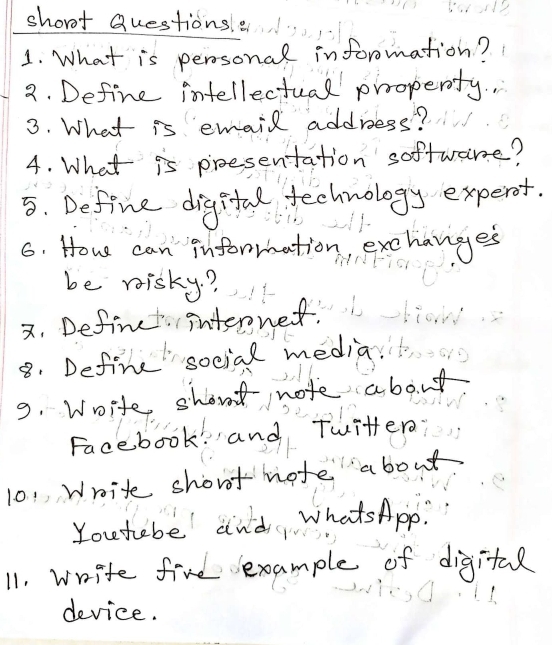 short Questions:
1. What is personal information?
2. Define intellectual property.
3. What is email address?
4. What is presentation software?
5. Define digital technology expert.
6. How can information exchanges
be risky?
7. Define internet.
8. Define social media.
9. Write short note about
Facebook and Twitter
10. Write short note about
Youtube and WhatsApp.
11. Write five example of digital
device.